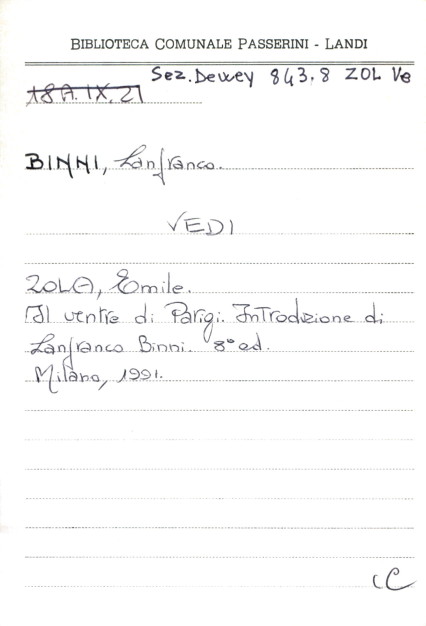 BIBLIOTECA COMUNALE PASSERINI - LANDI
Sez. Dewey 843.8 ZOL Ve
18A.IX.21
BINNI, Lanfranco.
VEDI
ZOLA, Emile.
Il ventre di Parigi. Introduzione di
Lanfranco Binni. 8° ed.
Milano, 1991.